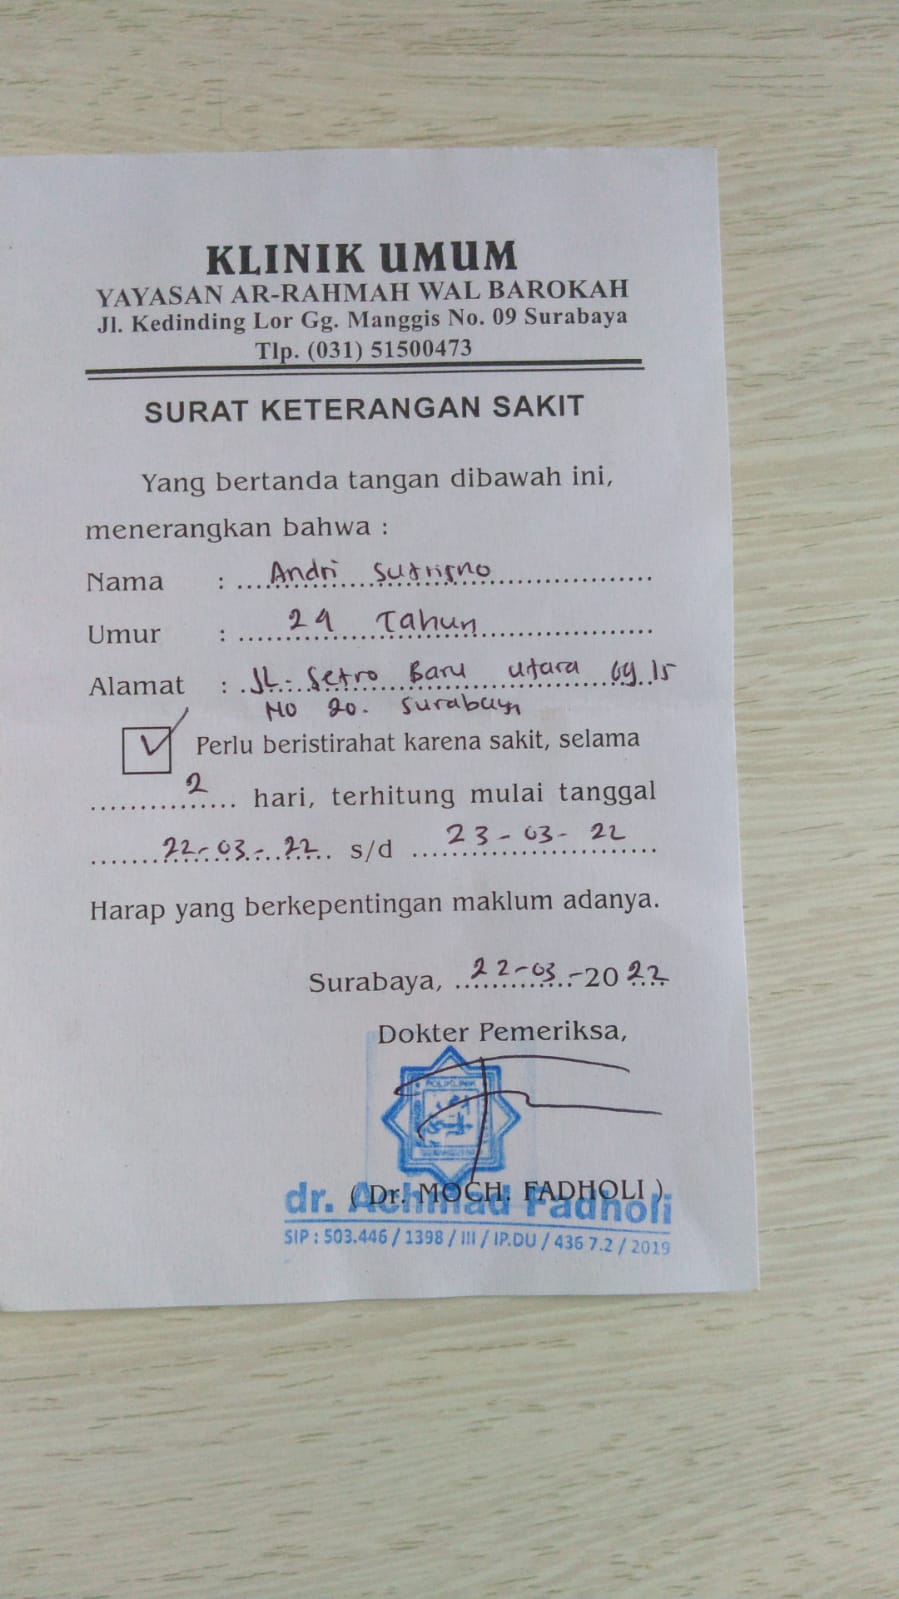 KLINIK UMUM
YAYASAN AR-RAHMAH WAL BAROKAH
Jl. Kedinding Lor Gg. Manggis No. 09 Surabaya
Tlp. (031) 51500473
SURAT KETERANGAN SAKIT
Yang bertanda tangan dibawah ini,
menerangkan bahwa :
Nama : Andri Sutrisno
Umur : 29 Tahun
Alamat : JL. Setro Baru Utara Gg 15
No 20. Surabaya
Perlu beristirahat karena sakit, selama
2 hari, terhitung mulai tanggal
22-03-22 s/d 23-03-22
Harap yang berkepentingan maklum adanya.
Surabaya, 22-03-2022
Dokter Pemeriksa,
POLIKLINIK
( Dr. MOCH. FADHOLI )
dr. Achmad Fadholi
SIP : 503.446 / 1398 / III / IP.DU / 436 7.2 / 2019